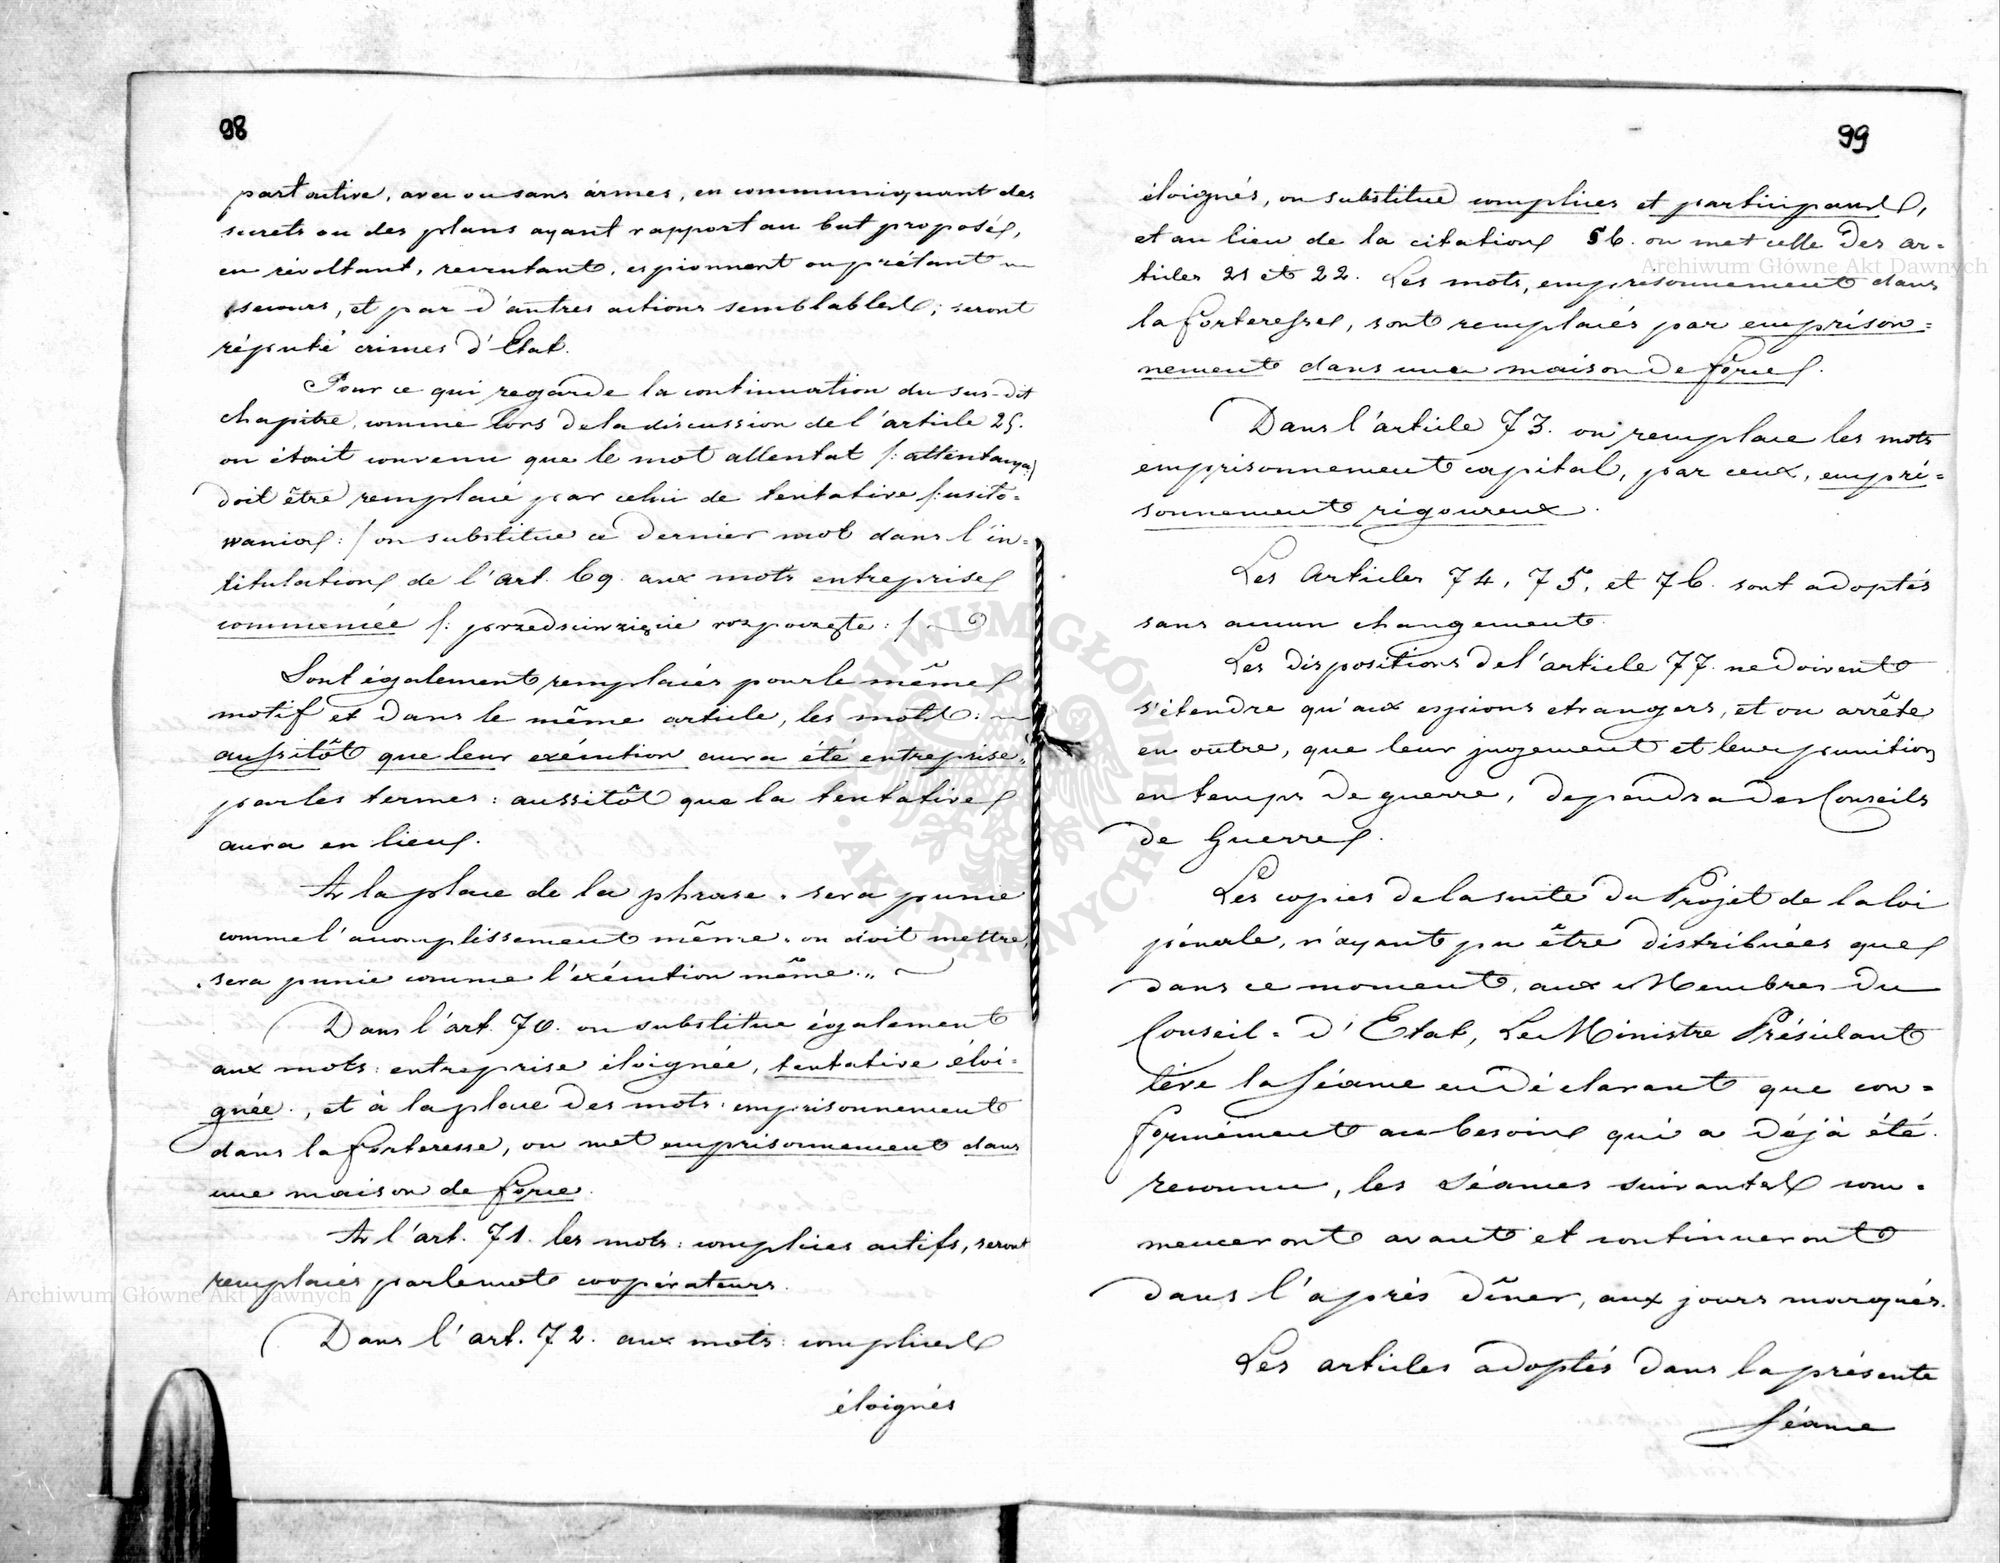 98
part active, avec ou sans armes, en communiquant des
secrets ou des plans ayant rapport au but proposé,
en révoltant, recrutant, espionnent ou prêtant
secours, et par d'autres actions semblables; seront
réputé crimes d'Etat.
Pour ce qui regarde la continuation du sus-dit
chapitre, comme lors de la discussion de l'article 25.
on était convenu que le mot attentat /: attentamya/
doit être remplacé par celui de tentative /: usiło=
wanior :/ on substitue ce dernier mot dans l'in=
titulation de l'art. 69. aux mots entreprise
commencée /: przedsiewzięcie rozpoczęte :/
Sont également remplacés pour le même
motif et dans le même article, les mots:
aussitôt que leur exécution aura été entreprise,,
par les termes: aussitôt que la tentative
aura eu lieu.
A la place de la phrase „ sera punie
comme l'accomplissement même „ on doit mettre
„ sera punie comme l'exécution même „
Dans l'art. 70. on substitue également
aux mots: entreprise éloignée, tentative éloi=
gnée., et à la place des mots: emprisonnement
dans la forteresse, on met emprisonnement dans
une maison de force.
A l'art. 71. les mots: complices actifs, seront
remplacés par le mot coopérateurs.
Dans l'art. 72. aux mots: complices
éloignés
99
éloignés, on substitue complices et participans,
et au lieu de la citation 56. on met celle des ar=
ticles 21 et 22. Les mots, empresonnement dans
la forteresse, sont remplacés par emprison=
nement dans une maison de force.
Dans l'article 73. on remplace les mots
emprisonnement capital, par ceux, empri=
sonnement rigoureux.
Les Articles 74, 75, et 76. sont adoptés
sans aucun changement.
Les dispositions de l'article 77. ne doivent
s'étendre qu'aux espions etrangers, et on arrête
en outre, que leur jugement et leur punition
en temps de guerre, dependra des Conseils
de Guerre.
Les copies de la suite du Projet de la loi
pénale, n'ayant pu être distribuées que
dans ce moment, aux Membres du
Conseil = d'Etat, Le Ministre Présidant
lève la Séance en déclarant que con=
formément au besoin qui a déjà été
reconnu, les Séances suivantes com=
menceront avant et continueront
dans l'après dîner, aux jours marqués.
Les articles adoptés dans la présente
Séance
Archiwum Główne Akt Dawnych
Archiwum Główne Akt Dawnych
ARCHIWUM GŁÓWNE · AKT DAWNYCH ·